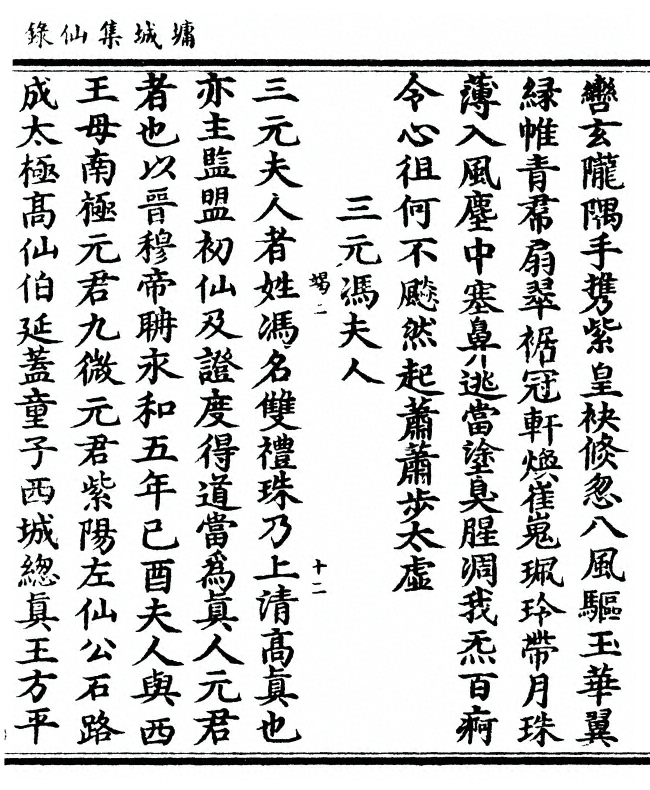 墉城集仙錄
轡玄隴隅手携紫皇袂倐忽八風驅玉華翼
緑帷青帬扇翠裾冠軒煥崔嵬珮玲帶月珠
薄入風塵中塞鼻逃當塗臭腥凋我炁百痾
令心徂何不飈然起蕭蕭步太虛
三元馮夫人
竭二 十二
三元夫人者姓馮名雙禮珠乃上清高眞也
亦主監盟初仙及證度得道當爲眞人元君
者也以晉穆帝聃永和五年己酉夫人與西
王母南極元君九微元君紫陽左仙公石路
成太極高仙伯延蓋童子西城總眞王方平